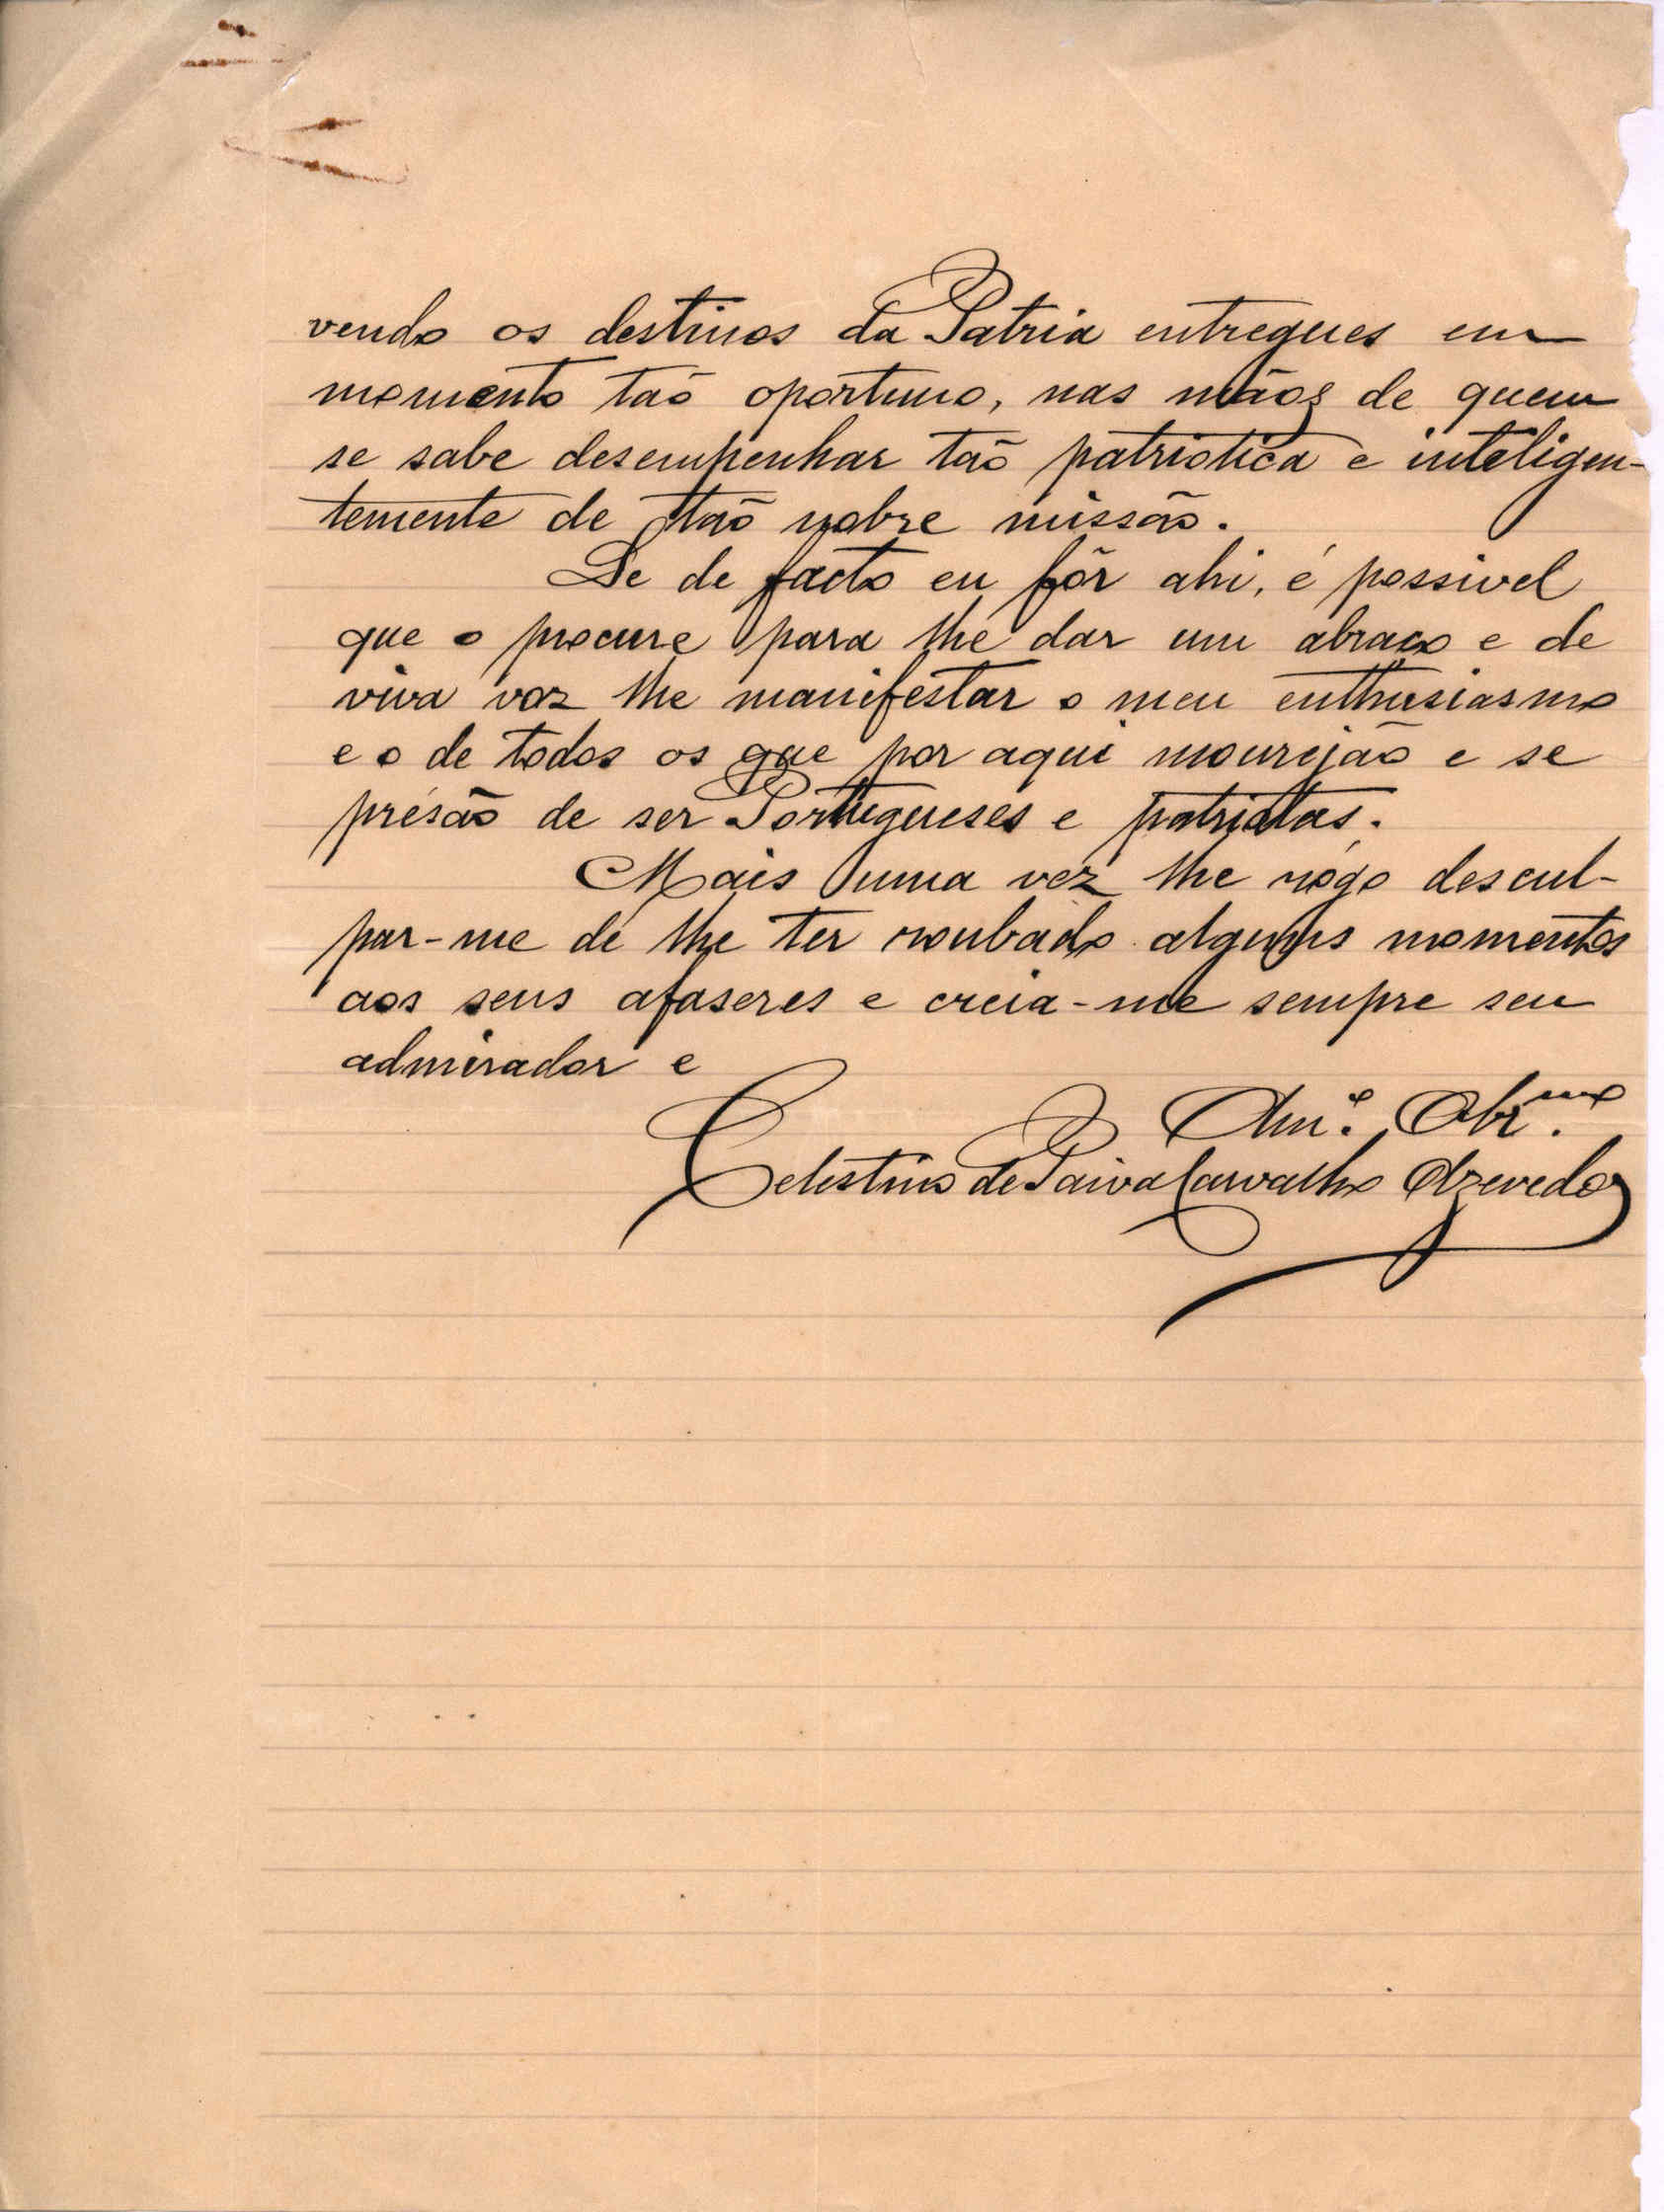 vendo os destinos da Patria entregues em
momento tão oportuno, nas mãos de quem
se sabe desempenhar tão patriotica e inteligen-
temente de tão nobre missão.
Se de facto eu fôr ahi, é possivel
que o procure para lhe dar um abraço e de
viva voz lhe manifestar o meu enthusiasmo
e o de todos os que por aqui mourejão e se
presão de ser Portugueses e patriotas.
Mais uma vez lhe rógo descul-
par-me de lhe ter roubado alguns momentos
aos seus afaseres e creia-me sempre seu
admirador e
Am.º Obr.mo
Celestino de Paiva Carvalho Azevedo